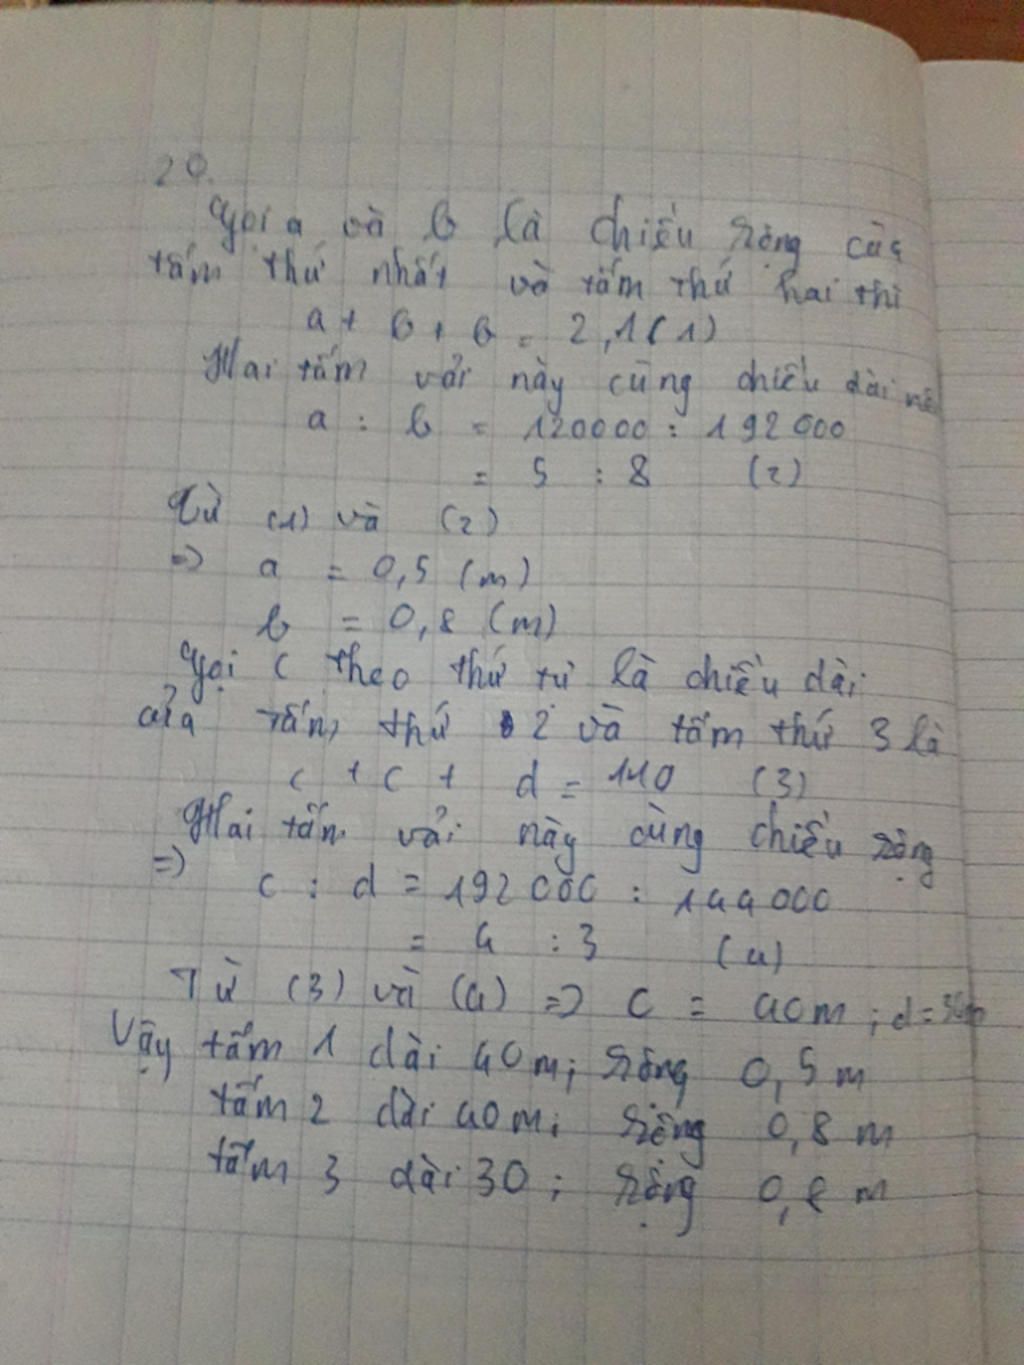 20.
Gọi a và b là chiều rộng của
tấm thứ nhất và tấm thứ hai thì
a + b + b = 2,1 (1)
Hai tấm vải này cùng chiều dài nên
a : b = 120000 : 192000
= 5 : 8 (2)
Từ (1) và (2)
=> a = 0,5 (m)
b = 0,8 (m)
Gọi c theo thứ tự là chiều dài
của tấm thứ 2 và tấm thứ 3 là
c + c + d = 110 (3)
Hai tấm vải này cùng chiều rộng
=>
c : d = 192000 : 144000
= 4 : 3 (4)
Từ (3) và (4) => c = 40m ; d = 30m
Vậy tấm 1 dài 40m; rộng 0,5 m
tấm 2 dài 40m; rộng 0,8 m
tấm 3 dài 30 ; rộng 0,8 m